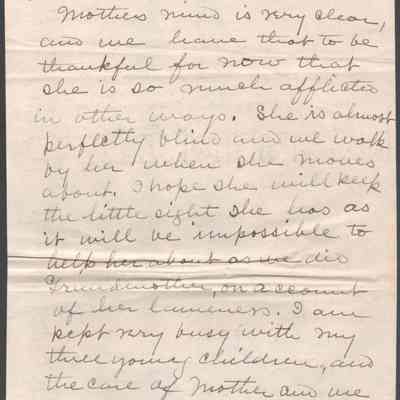 Mothers mind is very clear,
and we have that to be
thankful for now that
she is so much afflicted
in other ways. She is almost
perfectly blind and we walk
by her when she moves
about. I hope she will keep
the little sight she has as
it will be impossible to
help her about as we did
Grandmother, on account
of her lameness. I am
kept very busy with my
three young children, and
the care of Mother and we